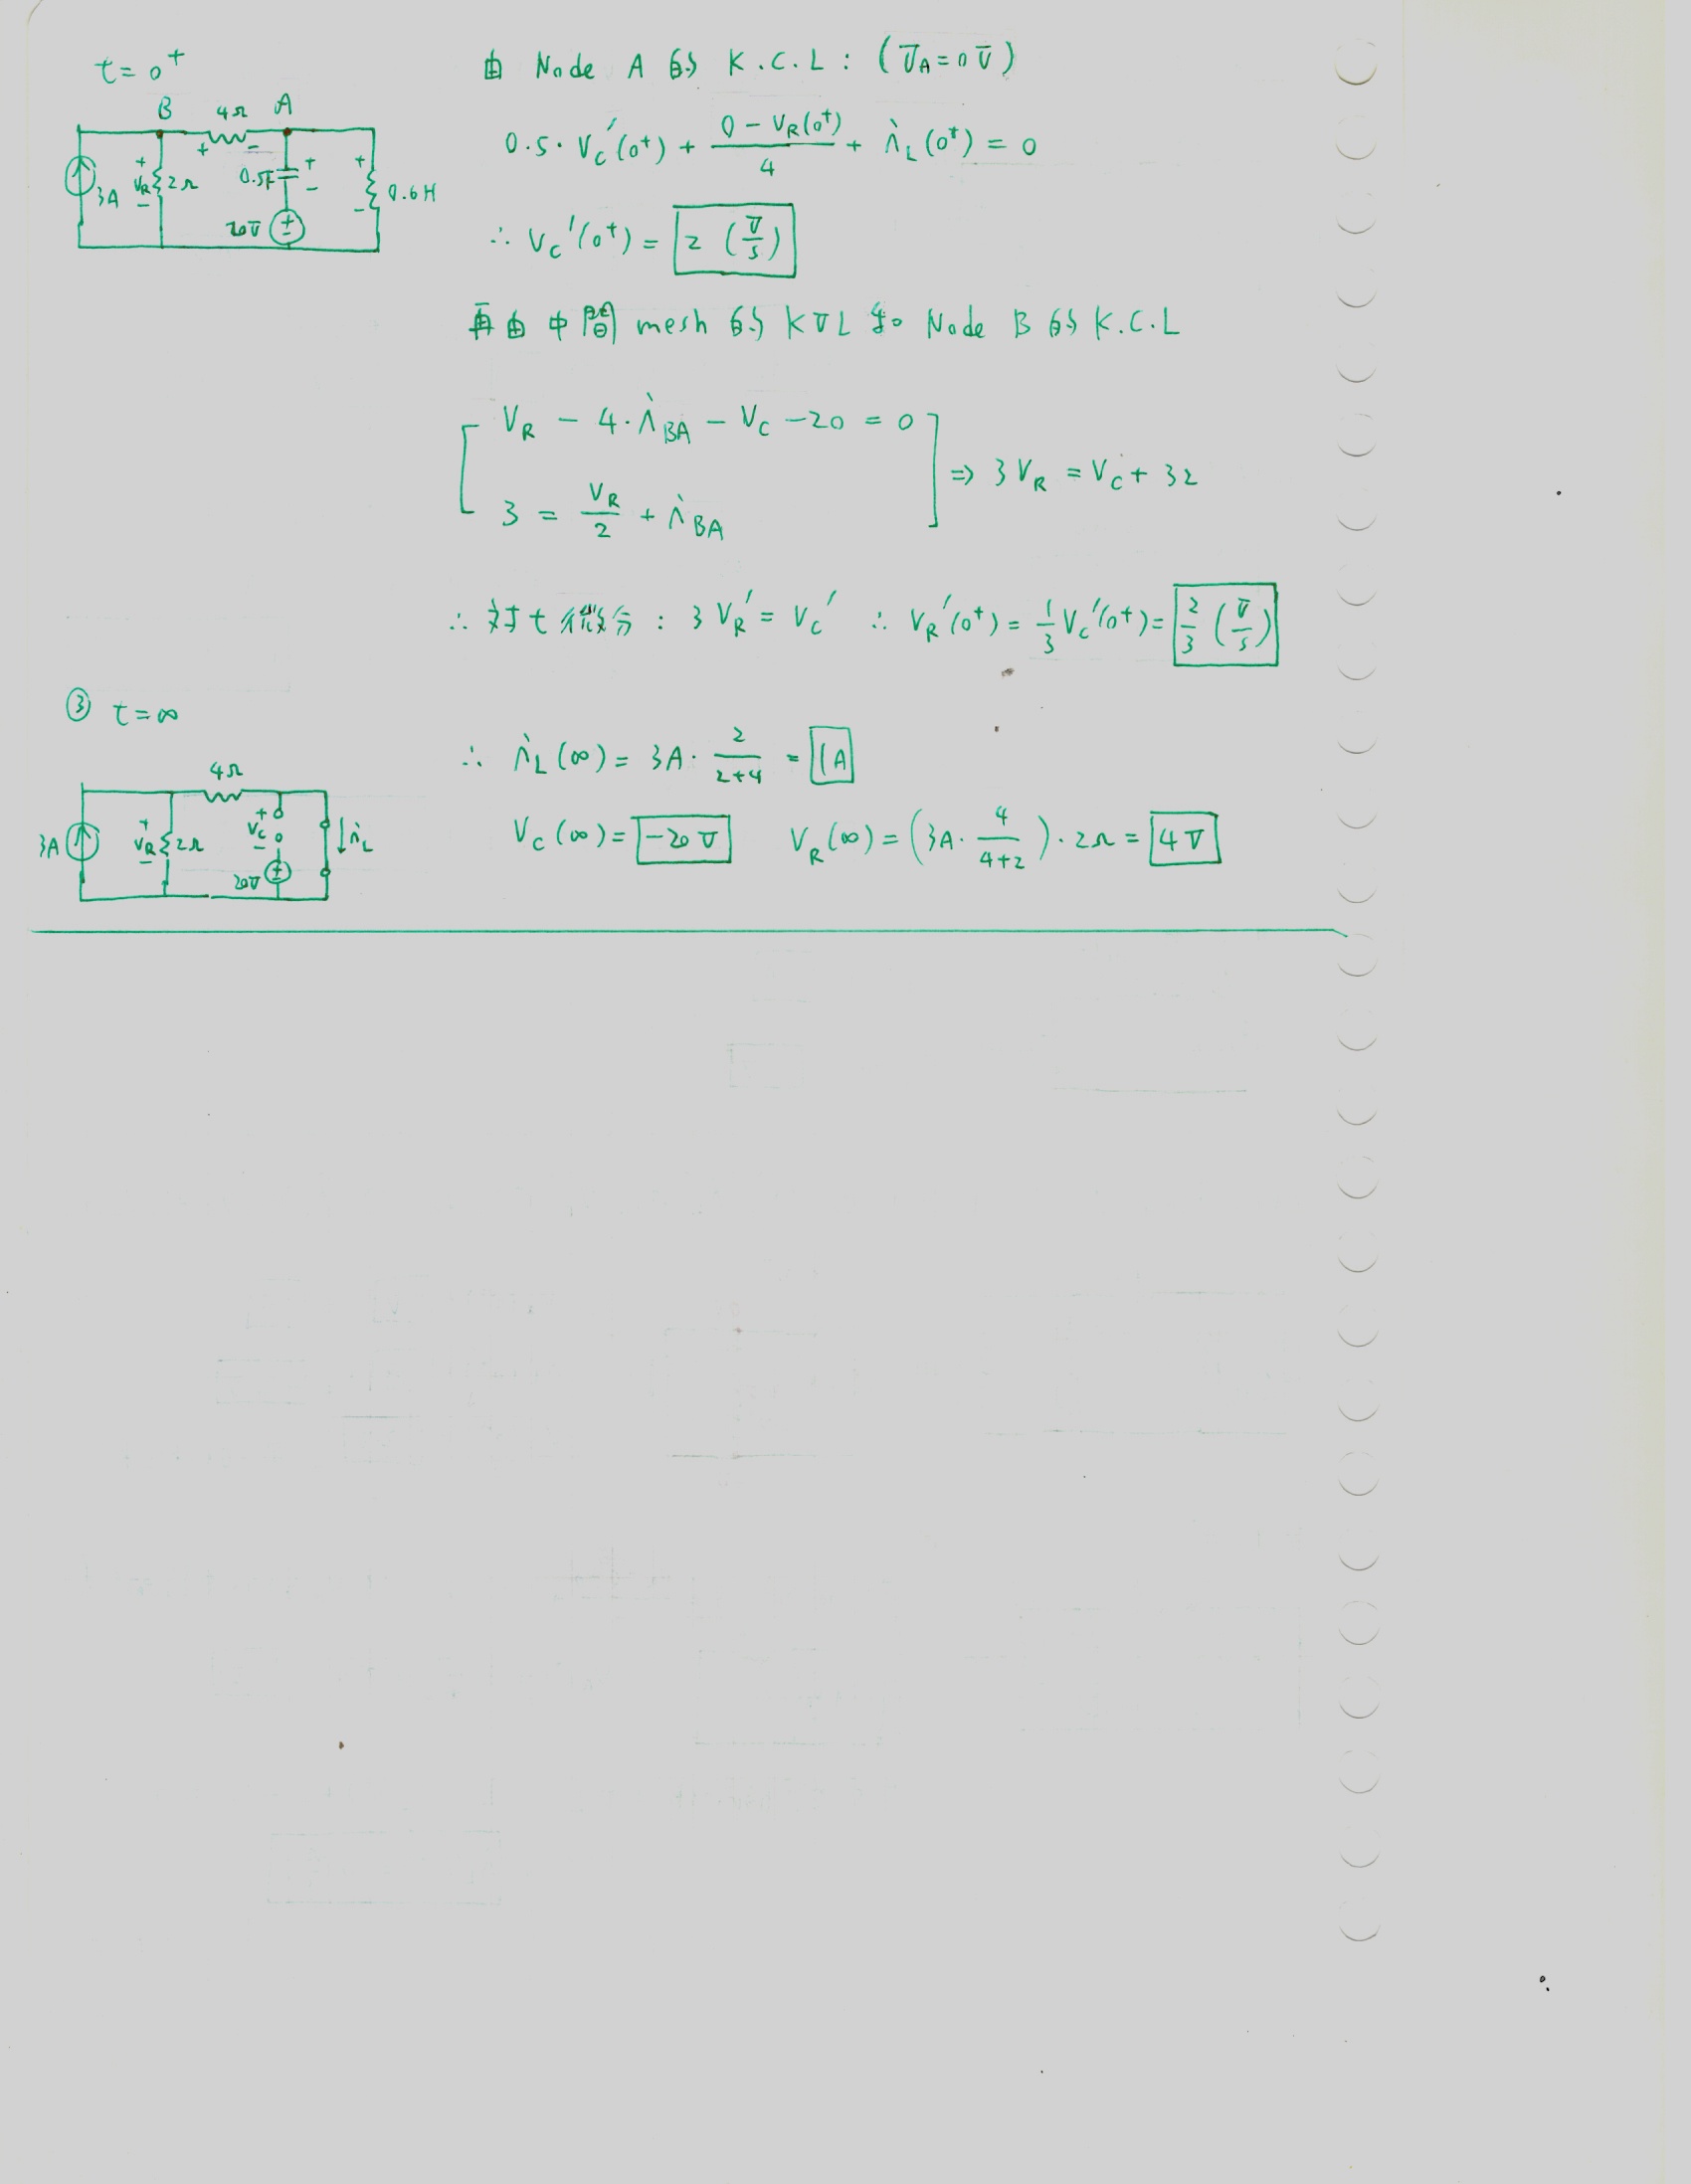 t = 0⁺
由 Node A 的 K.C.L : (V_A = 0V)
B 4Ω A
+ −
3A + V_R − 2Ω 0.5F + − + − 0.6H
20V + −
0.5 · V_C'(0⁺) + (0 − V_R(0⁺))/4 + i_L(0⁺) = 0
∴ V_C'(0⁺) = 2 (V/s)
再由中間 mesh 的 KVL 和 Node B 的 K.C.L
V_R − 4 · i_BA − V_C − 20 = 0
3 = V_R/2 + i_BA
⇒ 3V_R = V_C + 32
∴ 対 t 微分 : 3V_R' = V_C' ∴ V_R'(0⁺) = 1/3 V_C'(0⁺) = 2/3 (V/s)
③ t = ∞
4Ω
3A + V_R − 2Ω + V_C − ↓ i_L
20V + −
∴ i_L(∞) = 3A · 2/(2+4) = 1A
V_C(∞) = −20V V_R(∞) = (3A · 4/(4+2)) · 2Ω = 4V